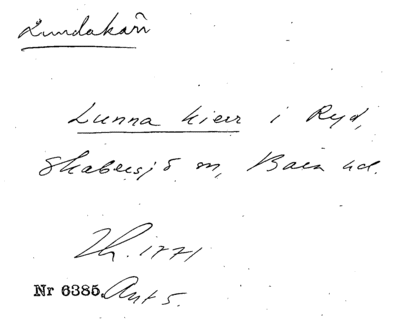 Lundakärr
Lunna Kierr i Ryd,
Skabersjö sn, Bara hd.
Th. 1771
Nr 6385. Avt 5.